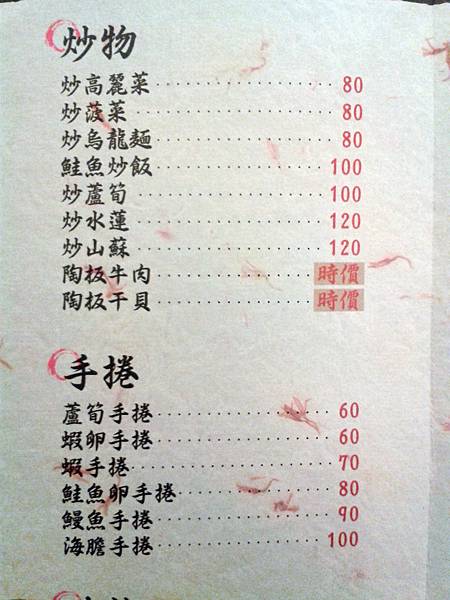 炒物
炒高麗菜 80
炒菠菜 80
炒烏龍麵 80
鮭魚炒飯 100
炒蘆筍 100
炒水蓮 120
炒山蘇 120
陶板牛肉 時價
陶板干貝 時價
手捲
蘆筍手捲 60
蝦卵手捲 60
蝦手捲 70
鮭魚卵手捲 80
鰻魚手捲 90
海膽手捲 100